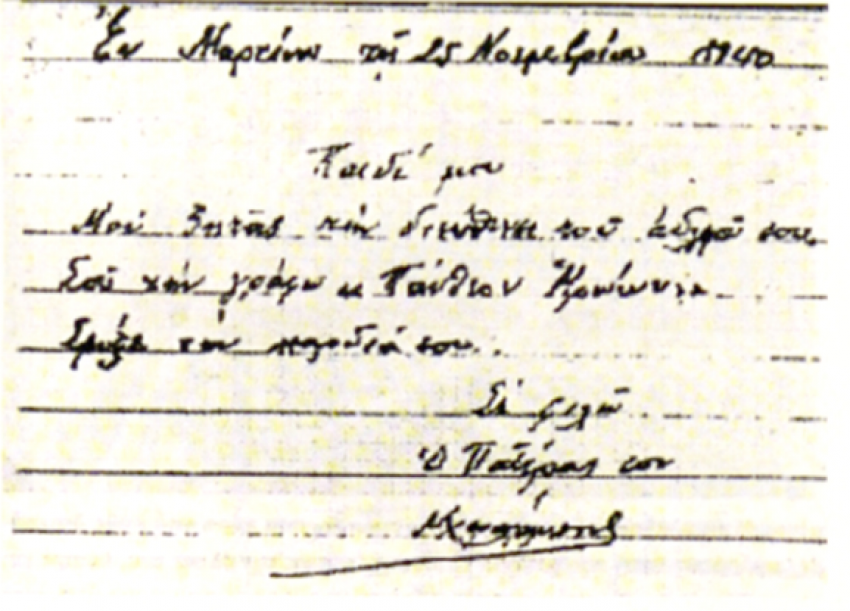 Ἐν Μαρτίνω τῇ 25 Νοεμβρίου 1940
Παιδί μου
Μοῦ ζητᾶς τὴν διεύθυνσι τοῦ ἀδελφοῦ σου.
Σοῦ τὴν γράφω " Πάνθεον Ἡρώων ".
Σφίξε τὴν καρδιά σου.
Σὲ φιλῶ
Ὁ Πατέρας σου